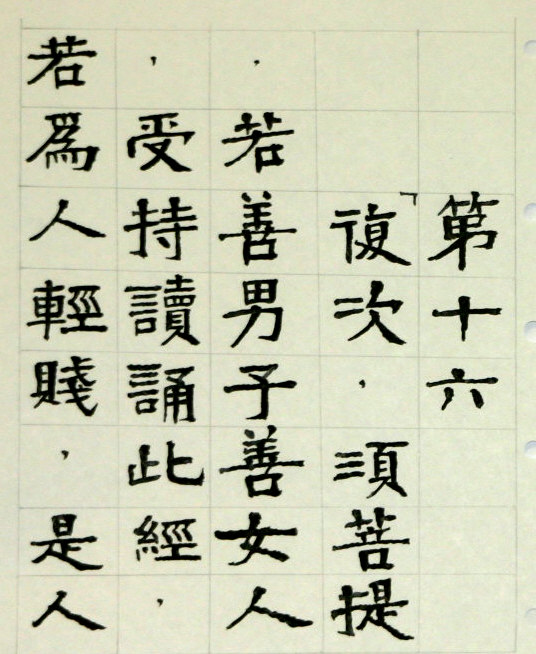 第十六
「復次,須菩提
,若善男子善女人
,受持讀誦此經,
若爲人輕賤,是人